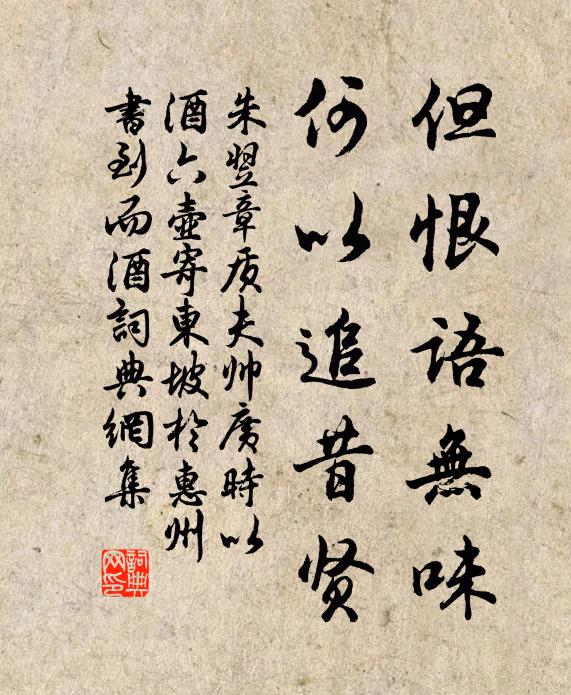 但恨語無味
何以追昔贤
朱翌章质夫帅广時以
酒六壺寄東坡於惠州
書到而酒詞典網集
詞典网印